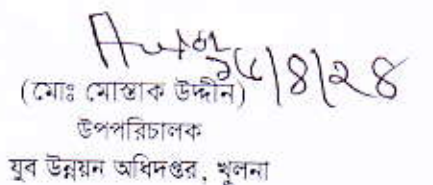 ১৫/৪/২৪
(মোঃ মোস্তাক উদ্দীন)
উপপরিচালক
যুব উন্নয়ন অধিদপ্তর, খুলনা